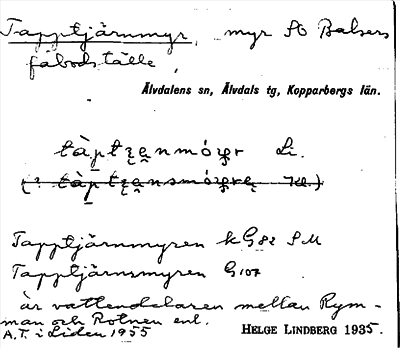 Tapptjärnmyr, myr SO Balsers
fäbodställe,
Älvdalens sn, Älvdals tg, Kopparbergs län.
Li.
Tapptjärnmyren kG82 SM
Tapptjärnsmyren G107
är vattendelaren mellan Rym-
man och Rotnen enl.
A.T. i Liden 1955
HELGE LINDBERG 1935.